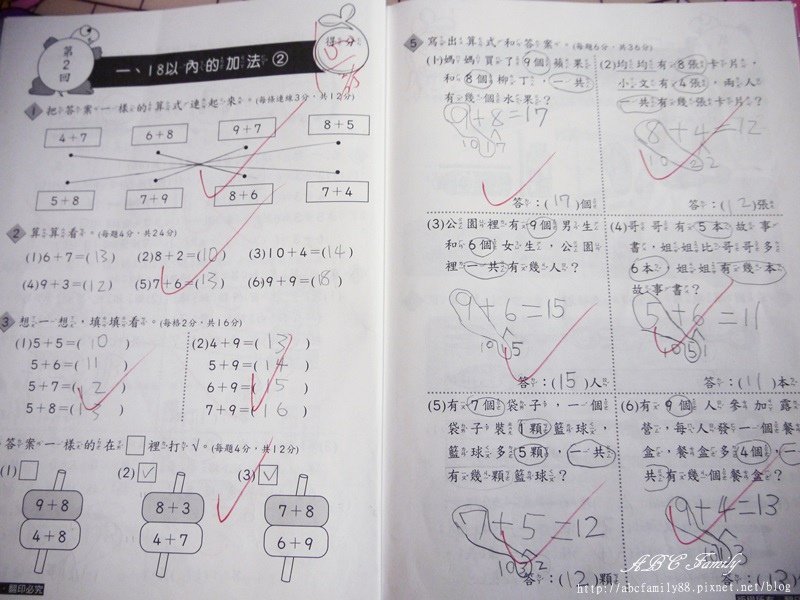 第2回
一、18以內的加法②
得分
100分
1 把答案一樣的算式連起來。(每條連線3分,共12分)
4+7 6+8 9+7 8+5
5+8 7+9 8+6 7+4
2 算算看。(每題4分,共24分)
(1)6+7=(13) (2)8+2=(10) (3)10+4=(14)
(4)9+3=(12) (5)7+6=(13) (6)9+9=(18)
3 想一想,填填看。(每格2分,共16分)
(1)5+5=(10) (2)4+9=(13)
5+6=(11) 5+9=(14)
5+7=(12) 6+9=(15)
5+8=(13) 7+9=(16)
答案一樣的在□裡打√。(每題4分,共12分)
(1) (2)√ (3)√
9+8 8+3 7+8
4+8 4+7 6+9
翻印必究
5 寫出算式和答案。(每題6分,共36分)
(1)媽媽買了9個蘋果
和8個柳丁,一共
有幾個水果?
9+8=17
10 17
答:(17)個
(2)均均有8張卡片,
小文有4張,兩人
一共有幾張卡片?
8+4=12
10 2 2
答:(12)張
(3)公園裡有9個男生
和6個女生,公園
裡一共有幾人?
9+6=15
10 1 5
答:(15)人
(4)哥哥有5本故事
書,姐姐比哥哥多
6本,姐姐有幾本
故事書?
5+6=11
10 5 1
答:(11)本
(5)有7個袋子,一個
袋子裝1顆籃球,
籃球多5顆,一共
有幾顆籃球?
7+5=12
10 3 2
答:(12)顆
(6)有9個人參加露
營,每人發一個餐
盒,餐盒多4個,一
共有幾個餐盒?
9+4=13
答:(13)
ABC Family
http://abcfamily88.pixnet.net/blog